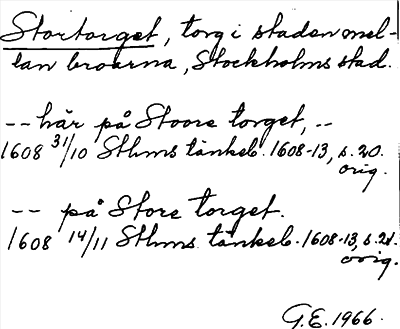 Stortorget, torg i staden mel-
lan broarna, Stockholms stad.
-- här på Stoore torget, --
1608 31/10 Sthms tänkeb. 1608-13, s. 20.
orig.
-- på Store torget.
1608 14/11 Sthms tänkeb. 1608-13, s. 21.
orig.
G.E. 1966.